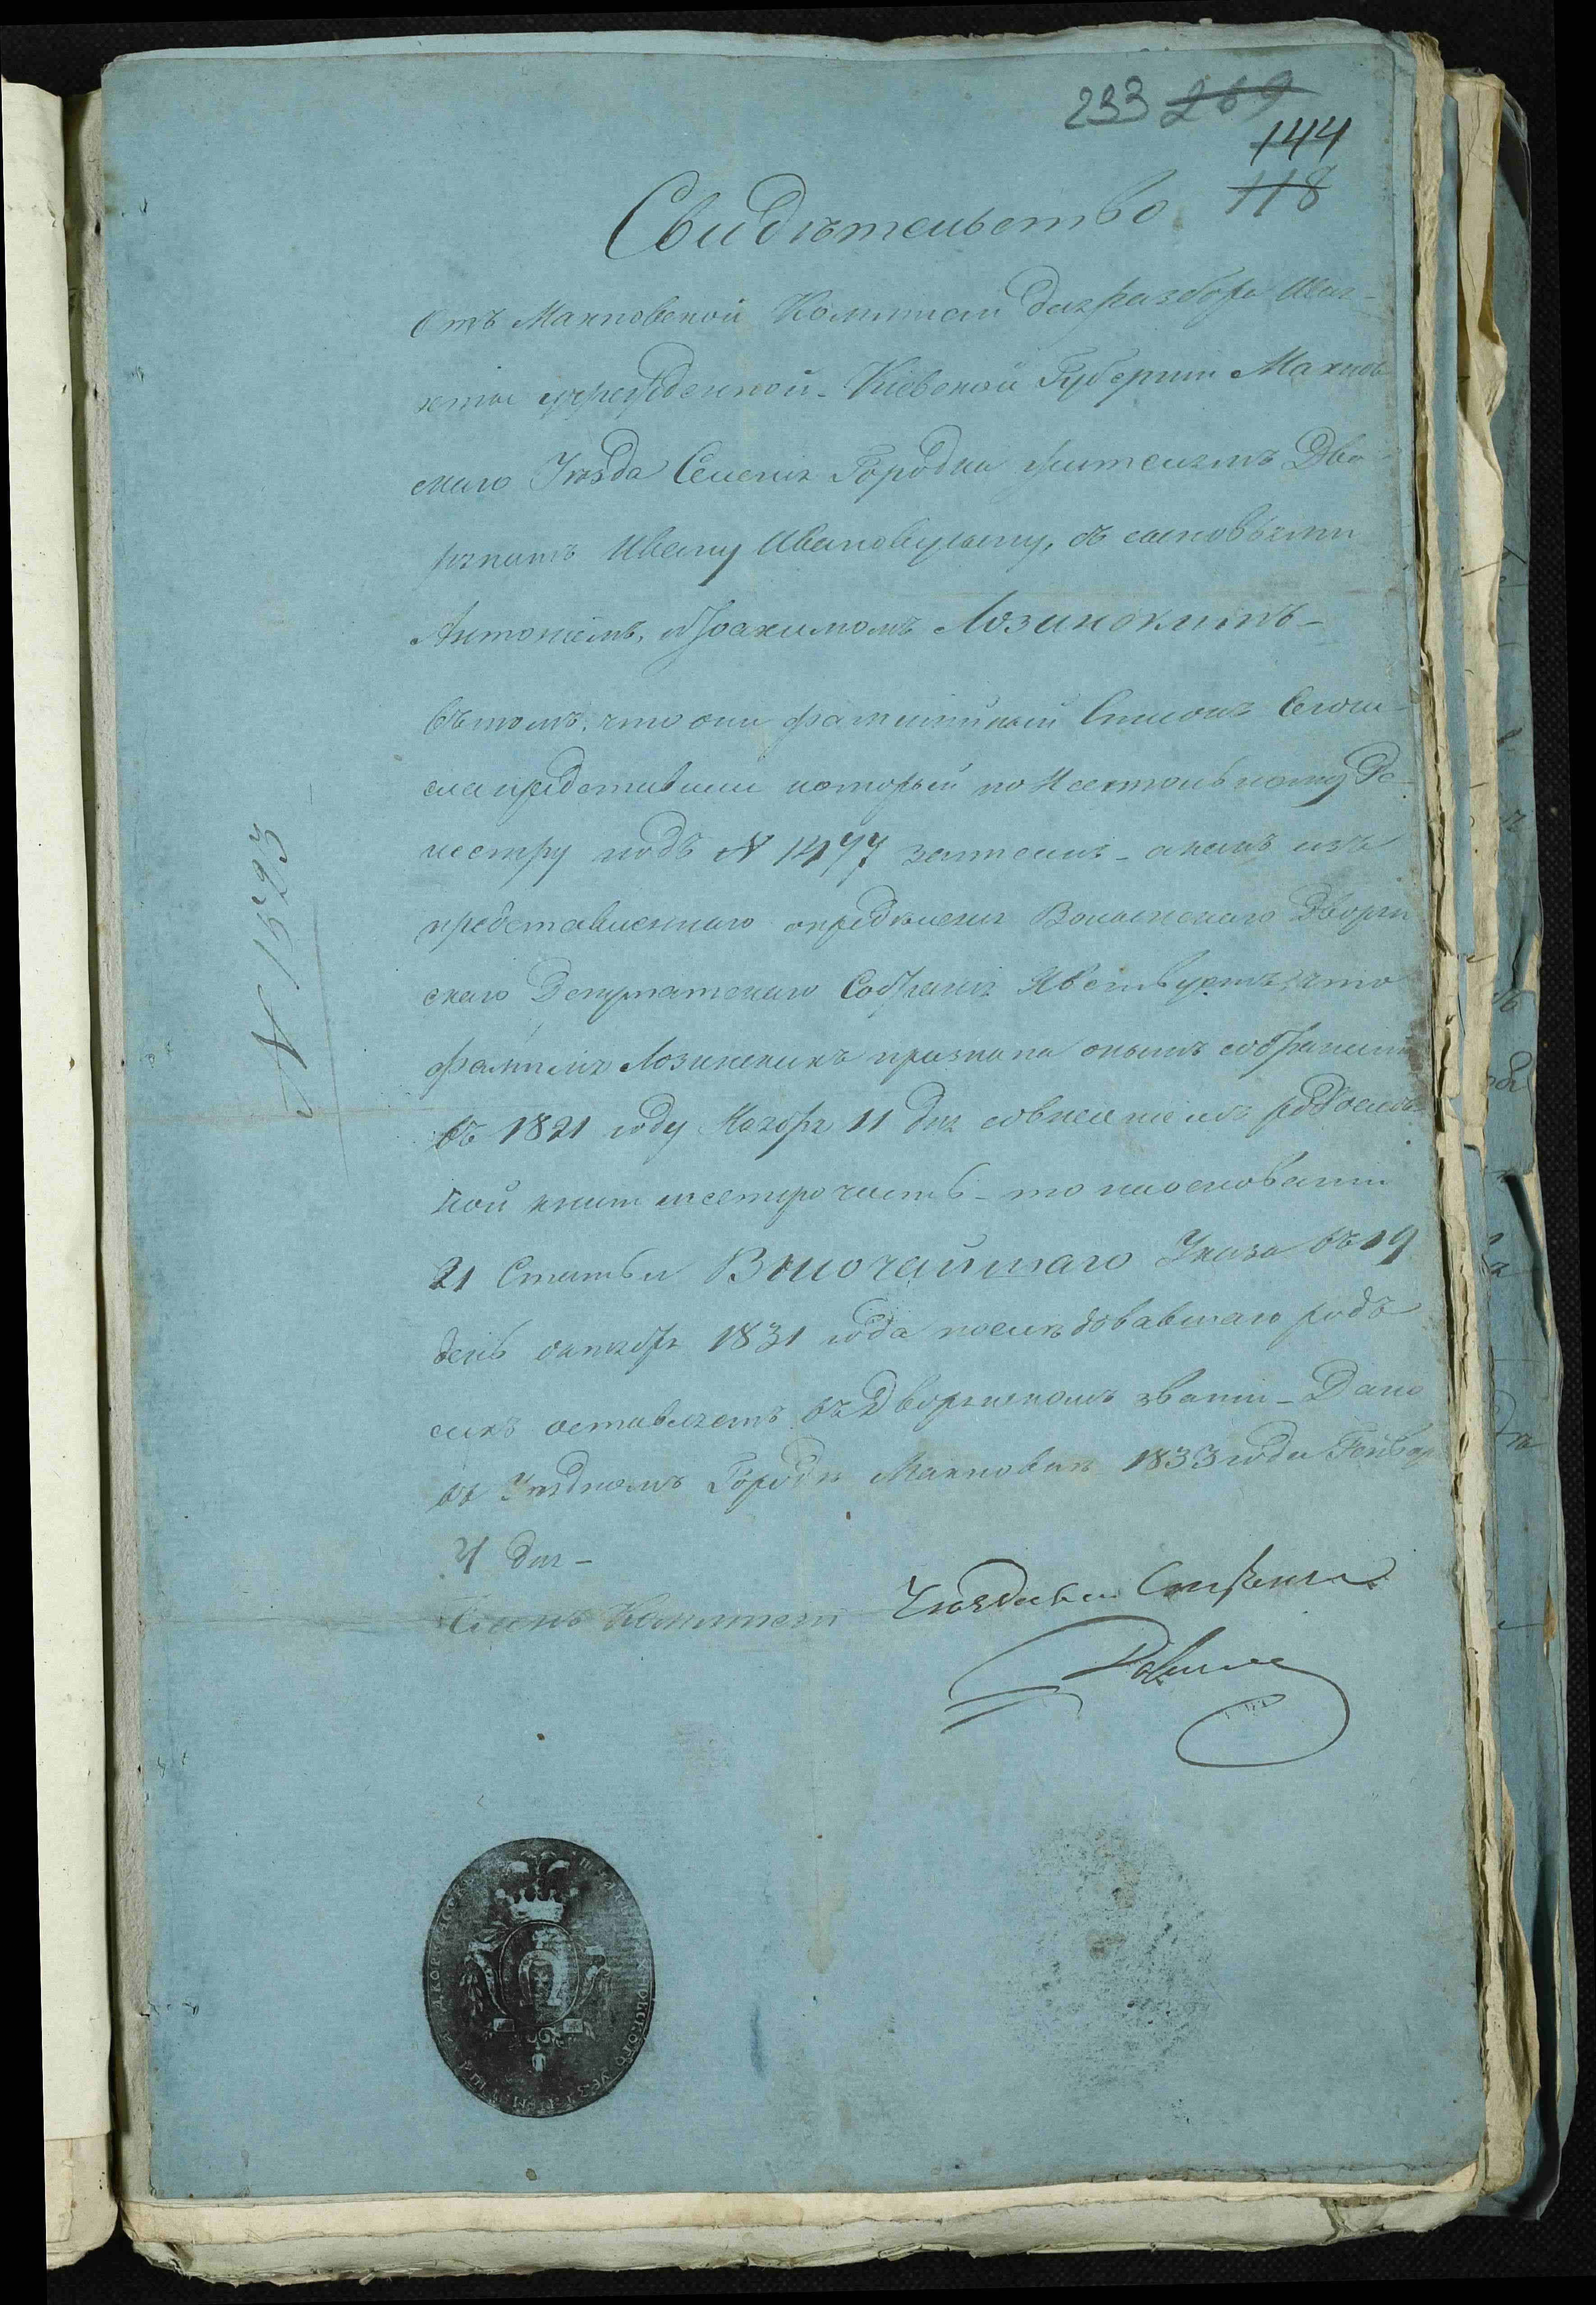 233 269
144
118
Свидѣтельство
Отъ Махновской Коммисіи для разбора Шлях-
тия учрежденной - Кіевской Губерніи Махнов
скаго Уѣзда Селенія Городка жителямъ Дво
рянамъ Ивану Иванову сыну, съ сыновьями
Антоніемъ, Іоахимомъ Лозинскимъ -
въ томъ, что они фамилійный Списокъ
представили который по Настольному Ре
нестру подъ N 1477 замѣчанъ - а какъ изъ
представленнаго опредѣленія Волынскаго Дворян
скаго Депутатскаго Собранія явствуетъ, что
фамилія Лозинскихъ признана онымъ собраніемъ
въ 1821 году Ноября 11 дня совнесеніемъ родослов
ной книги шестую часть - то на основаніи
21 Статьи Высочайшаго Указа въ 19
день октября 1831 года послѣдовавшаго родъ
сихъ оставляетъ въ Дворянскомъ званіи - Дано
въ Уѣздномъ Городѣ Махновкѣ 1833 года Генвар
4 дня -
Членъ Комитета Уѣздный
N 1523